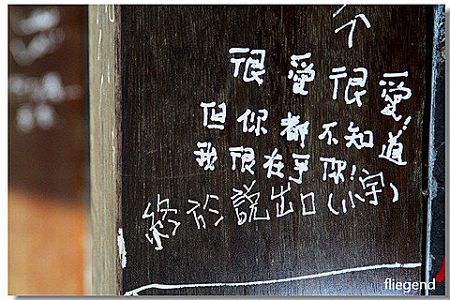 很愛很愛!
但你都不知道
我很在乎你!
終於說出口(小字)
fliegend